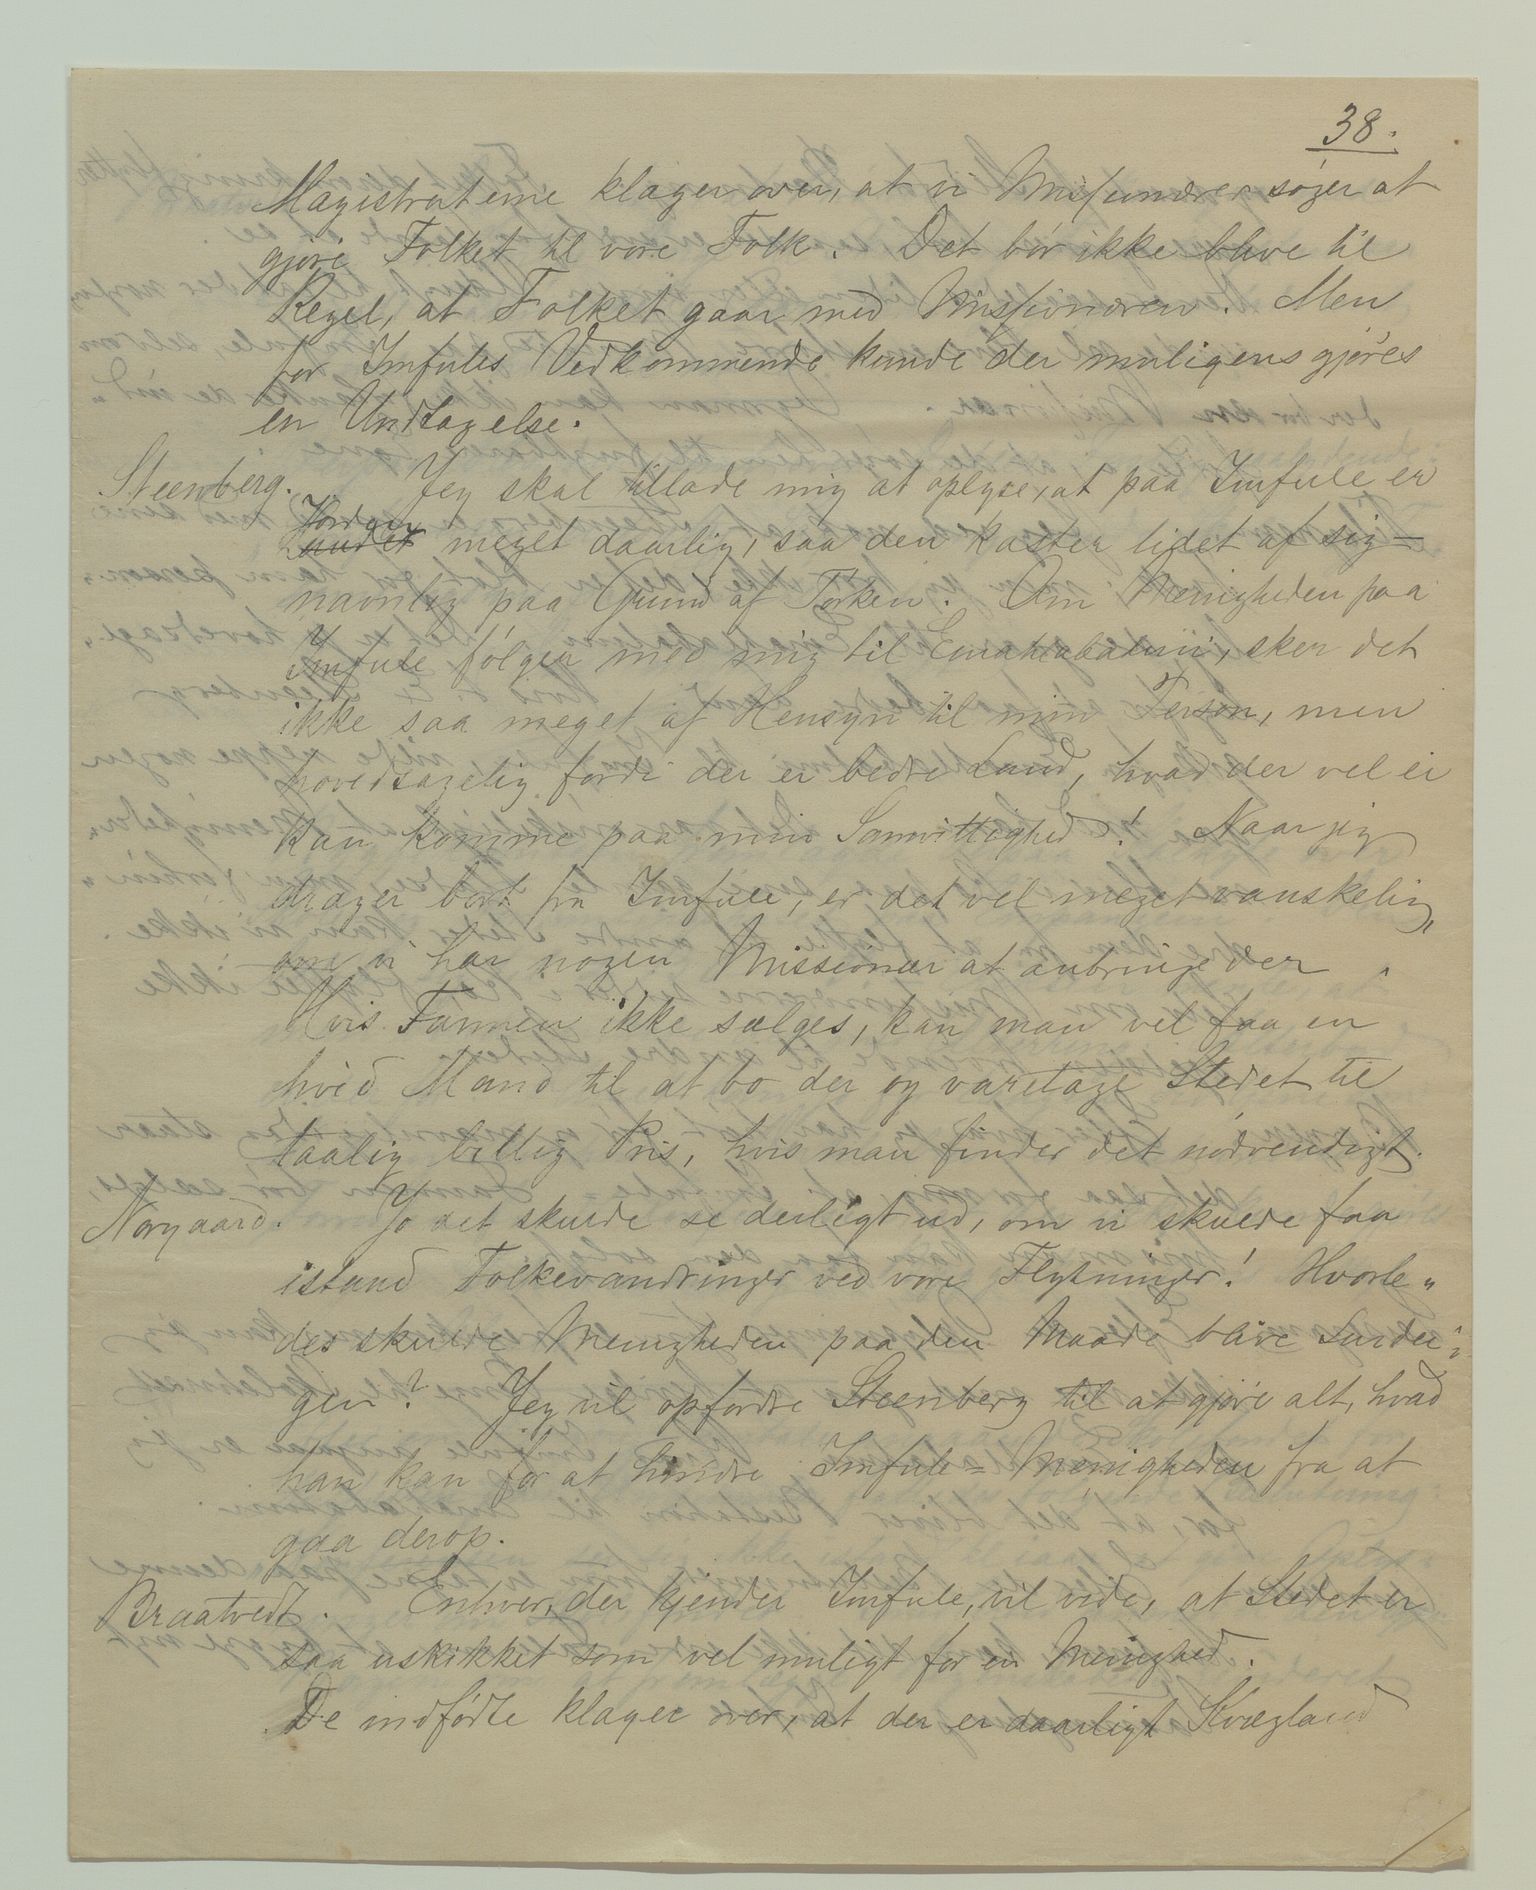 38.
Magistraterne klager over, at vi Missionærer søger at
gjøre Folket til vore Folk. Det bør ikke blive til
Regel, at Folket gaar med Missionæren. Men
for Imfules Vedkommende kunde der muligens gjøres
en Undtagelse.
Steenberg. Jeg skal tillade mig at oplyse, at paa Imfule er
Jorden
Landet meget daarlig, saa den kaster lidet af sig -
navnlig paa Grund af Tørken. Om Menigheden paa
Imfule følger med mig til Emahlabatini, sker det
ikke saa meget af Hensyn til min Person, men
hovedsagelig fordi der er bedre Land, hvad der vel ei
kan komme paa min Samvittighed! Naar jeg
drager bort fra Imfule, er det vel meget vanskelig,
om vi har nogen Missionær at anbringe der
Hvis Farmen ikke sælges, kan man vel faa en
hvid Mand til at bo der og varetage Stedet til
taalig billig Pris, hvis man finder det nødvendigt.
Norgaard. Jo det skulde se deiligt ud, om vi skulde faa
istand Folkevandringer ved vore Flytninger! Hvorle„
des skulde Menigheden paa den Maade blive
gen? Jeg vil opfordre Steenberg til at gjøre alt, hvad
han kan for at hindre Imfule=Menigheden fra at
gaa derop.
Braatvedt. Enhver, der kjender Imfule, vil vide, at Stedet er
saa uskikket som vel muligt for en Menighed.
De indfødte klager over, at der er daarligt Kvægland